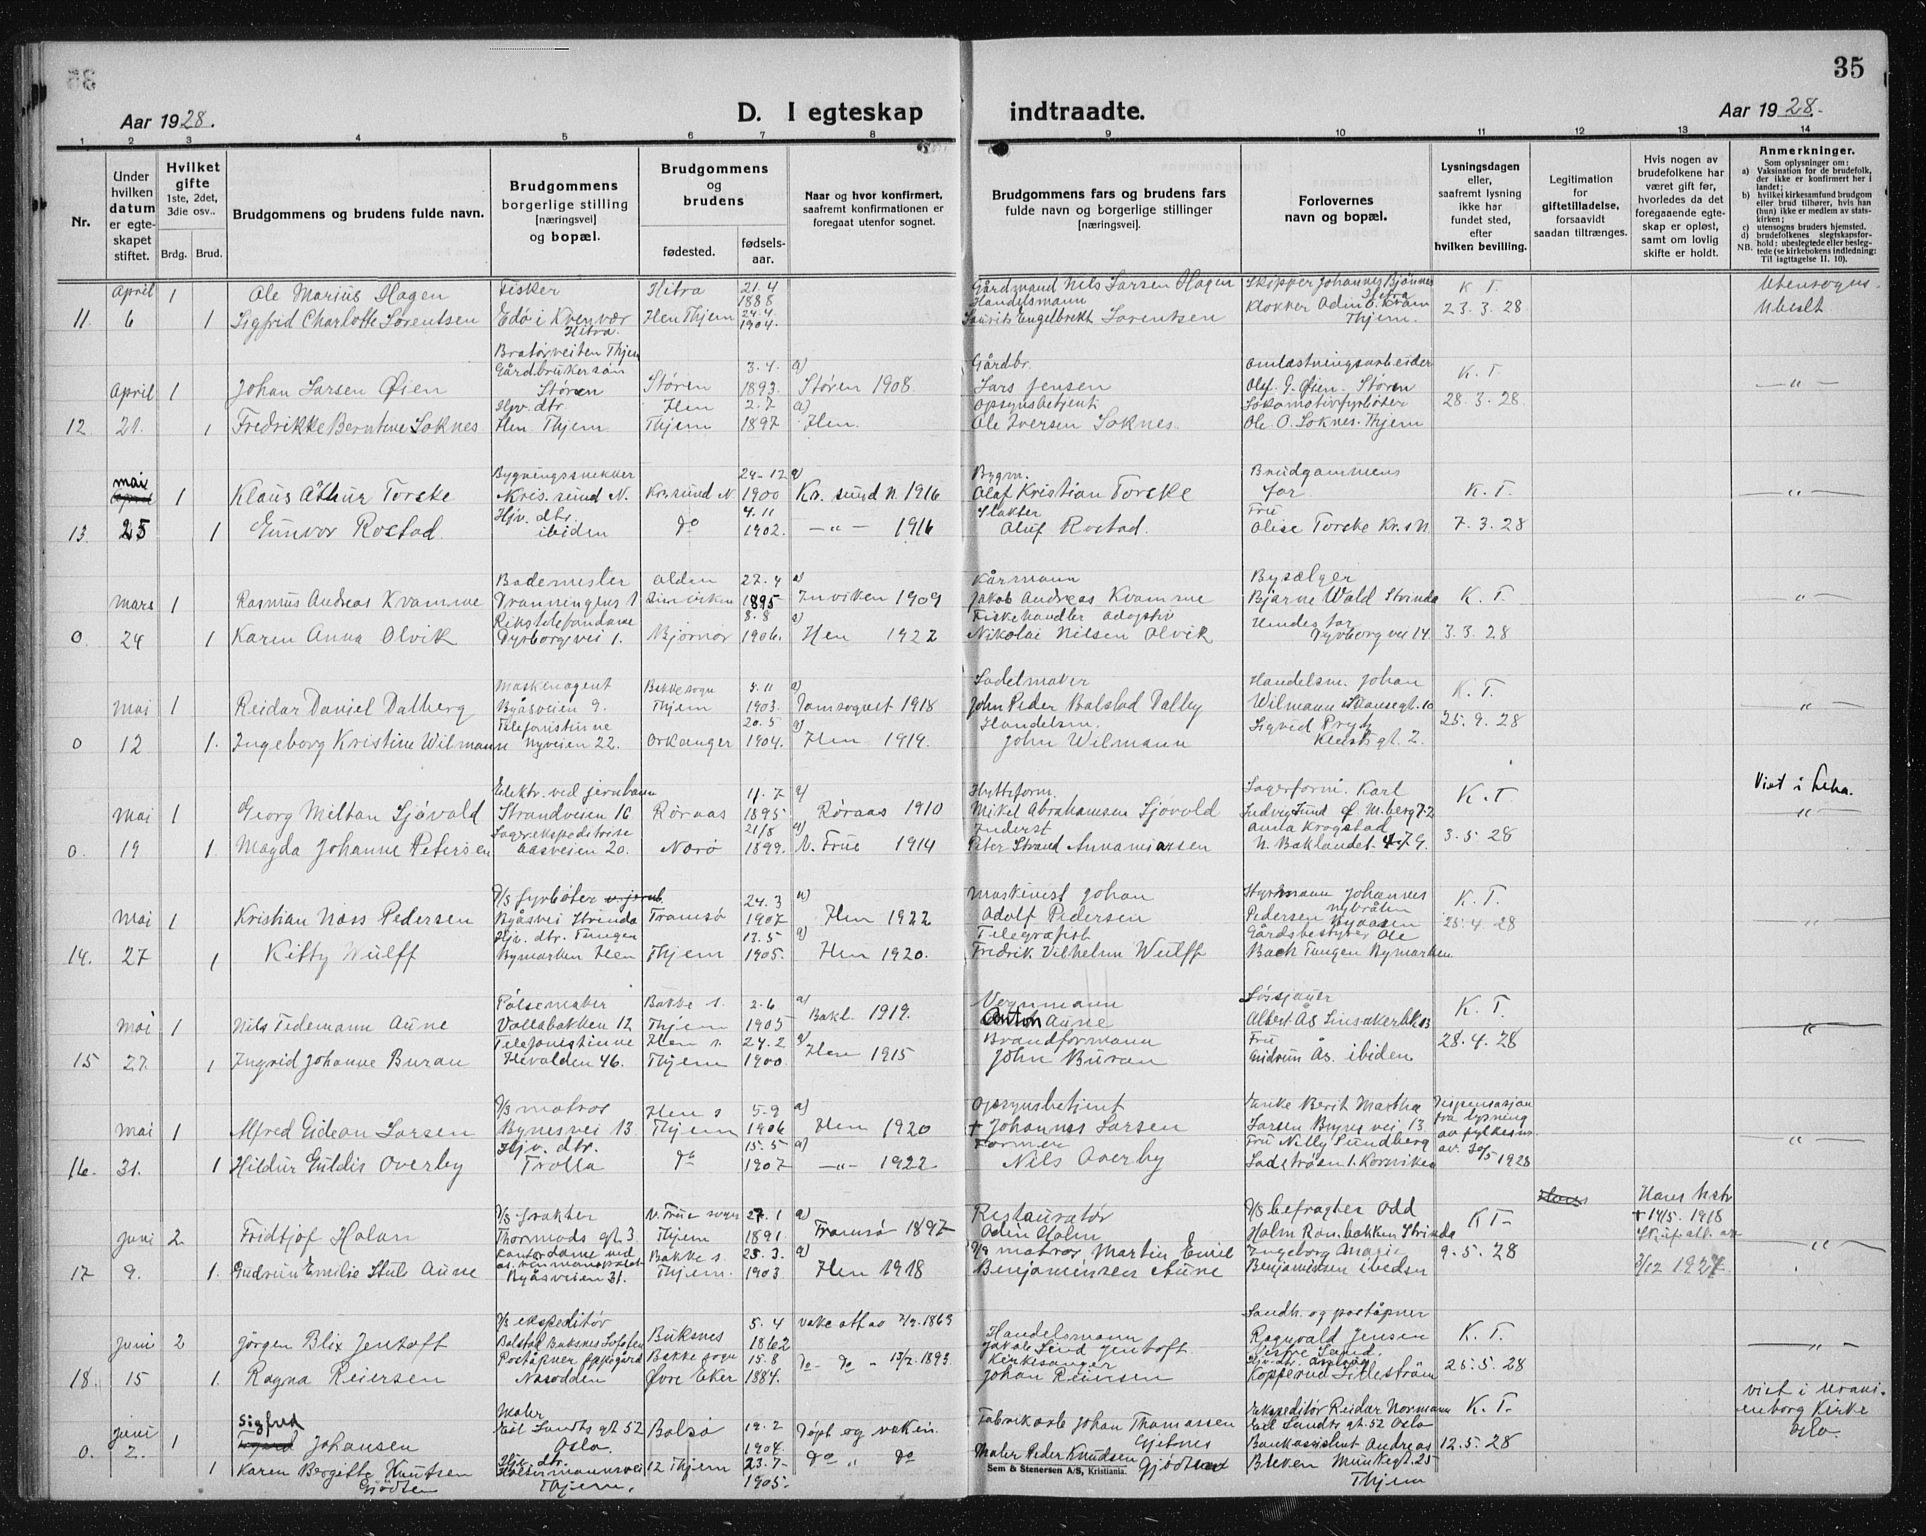 35
Aar 1928.
D. I egteskap indtraadte.
Aar 1928.
1 2 3 4 5 6 7 8 9 10 11 12 13 14
Nr.
Under hvilken datum er egteskapet stiftet.
Hvilket gifte 1ste, 2det, 3die osv..
Brdg. Brud.
Brudgommens og brudens fulde navn.
Brudgommens borgerlige stilling [næringsvei] og bopæl.
Brudgommens og brudens
fødested. fødselsaar.
Naar og hvor konfirmert, saafremt konfirmationen er foregaat utenfor sognet.
Brudgommens fars og brudens fars fulde navn og borgerlige stillinger [næringsvei].
Forlovernes navn og bopæl.
Lysningsdagen eller, saafremt lysning ikke har fundet sted, efter hvilken bevilling.
Legitimation for giftetilladelse, forsaavidt saadan tiltrænges.
Hvis nogen av brudefolkene har været gift før, hvorledes da det foregaaende egteskap er opløst, samt om lovlig skifte er holdt.
Anmerkninger.
Som oplysninger om:
a) Vaksination for de brudefolk, der ikke er konfirmert her i landet;
b) hvilket kirkesamfund brudgom eller brud tilhører, hvis han (hun) ikke er medlem av statskirken;
c) utensogns bruders hjemsted.
d) brudefolkenes slegtskapsforhold; ubeslegtede eller beslegtede (se kirkebokens indledning: Til iagttagelse II. 10).
NB.
April 1 Ole Marius Hagen Fisker Hitra 21.4 1888 Gårdmand Nils Larsen Hagen Skipper Johannes Bjønnes Hitra K. T. Utensogns.
11. 6 1 Sigfrid Charlotte Sorentsen Edø i Kvenvær Hitra. Hen Thjem 24.4 1904. Handelsmann Laurits Engelbrekt Sorentsen Klokker Odin O. Kvam Thjem. 23.3.28 Ubeslt.
Bratørveiten Thjem
April 1 Johan Larsen Øien Gårdbrukersøn Støren Støren 3.4. 1893. a) Støren 1908. Gårdbr. Lars Jensen Omlastningsarbeider Olaf J. Øien. Støren K. T. — " —
12. 21. 1 Fredrikke Berntine Soknes Hjv. dtr Hen Thjem Hen Thjem 2.7 1897 a) Hen. Opsynsbetjent Ole Iversen Soknes. Lokomotivfyrbøter Ole O. Soknes. Thjem 28.3.28
mai 1 Klaus Arthur Torske Bygningssnekker Kris.sund N. Kr.sund N 24-12 1900 a) Kr. sund N. 1916 Bygm. Olaf Kristian Torske Brudgommens far K. T. — " —
13. 25 1 Gunvor Rostad. Hjv. dtr. ibiden do 4.11 1902. — " — 1916 Slakter Oluf Rostad. Fru Olise Torske Kr.s N. 7.3.28
mars 1 Rasmus Andreas Kvamme Bademester Dronningens 1 Olden 22.4 1895 a) Inviken 1909 Kårmann Jakob Andreas Kvamme Bysælger Bjarne Wald Strinda K. T. — " —
0. 24 1 Karen Anna Olvik Rikstelefondame Dyrborgvei 1. Bjørnør 8.8 1906. a) Hen 1922 Fiskehandler adoptiv Nikolai Nilsen Olvik Hendes far Dyrborgvei 14. 3.3.28
mai 1 Reidar Daniel Dalberg Maskenagent Byåsveien 9. Bakke sogn Thjem 5.11 1903. a) Domsognet 1918 Sadelmaker John Peder Balstad Dalby Handelsm. Johan Wilmann Skansegt. 10 K. T. — " —
0 12 1. Ingeborg Kristine Wilmann Telefonistinne Nyveien 22. Orkanger 20.5 1904. a) Hen 1919. Handelsm. John Wilmann Sigvid Prytz gt. 2. 25.9.28
mai 1 Georg Milton Sjøvold Elektr. ved jernbanen Strandveien 16 Røraas 11.7 1895 a) Røraas 1910 Hytteform. Mikel Abrahamsen Sjøvold Lagerform. Karl Ludvig Lund K. T Viet i Leha. — " —
0. 19 1. Magda Johanne Petersen Lagerekspeditrise Aasveien 20. Norø 21/8 1899. a) V. Frue 1914 Inderst Peter Strand Anna Krogstad N. Baklandet 3.5.28
mai 1 Kristian Næss Pedersen D/S fyrbøter Byåsvei Strinda Tromsø 24.3 1907 a) Hen 1922 Maskinist Johan Adolf Pedersen Styrmann Johannes Pedersen K. T. — " —
14. 27 1 Kitty Wulff Hjv. dtr. Tungen Bymarken Hen Thjem 12.5 1905. a) Hen 1920. Telegrafist Fredrik Vilhelm Wulff Gårdsbestyrer Ole Bach Tungen Bymarken 25.4.28
mai 1 Nils Tidemann Aune Pølsemaker Vollabakken 12 Bakke s. Thjem 2.6 1905 a) Bakl. 1919. Vognmann Anton Aune Albert Ås K. T. — " —
15 27. 1 Ingrid Johanne Buran Telefonistinne Hevolden 46. Hen s. Thjem 24.2 1900. a) Hen 1915 Brandformann John Buran Fru Gudrun Ås. ibiden 28.4.28
mai 1 Alfred Gideon Larsen D/S matros Bynesvei 13 Hen s Thjem 5-9 1906 a) Hen 1920 Opsynsbetjent + Johannes Larsen Enke Berit Martha Larsen Bynesvei 13. Dispensasjon fra lysning av fylkesm. av. 30/5 1928 — " —
16. 31. 1 Hildur Guldis Overby Hjv. dtr. Trolla do 15.5 1907 a) — " — 1922. Former Nils Overby Fru Nelly Sundberg
juni 2 Fridtjof Holm D/S Thormods gt. 3. V. Frue sogn Thjem 27.1 1891 a) Tromsø 1897 Restauratør Odin Holm D/S befragter Odd Holm Ranbakken Strinda K T. + 14/5. 1918 — " —
17 9. 1. Gudrun Emilie Stub Aune Kontordame ved Byåsveien 31. Bakke s. Thjem. 25.3. 1903 a) Hen 1918 D/S matros Martin Emil Benjaminsen Aune Ingeborg Marie Benjaminsen ibeden 9.5.28 3/12 1927
juni 2 Jørgen Blix Jentoft D/S ekspeditør Balstad Buksnes Lofoten Buksnes 5.4 1862 Handelsmann Jakob Lind Jentoft Landh. og poståpner Ragnvald Jensen K. T. — " —
18. 15 1. Ragna Reiersen Poståpner Oppegård Nesodden Bakke sogn Øvre Eker 15.8 1884. do - do - 12/2. 1893. Kirkesanger Johan Reiersen 25.5.28
juni 1 Sigfred Johansen Maler Eil. Sundts gt 52 Oslo. Bolsø 19.2 1904. Døpt og vakin. Fabrikarb. Johan Thomassen Gjetnes Ekspeditør Reidar Normann Eil. Sundts gt. 52 Oslo K. T. viet i Uranienborg Kirke Oslo.
0. 2. 1 Karen Bergitte Knutsen Gjødsen Hjv. dtr. Thjem. Thjem 23.7- 1905. do " do Maler Peder Knudsen Bankassistent Andreas Bleven Munkegt. 25 Thjem 12.5.28
Sem & Stenersen A/S, Kristiania.